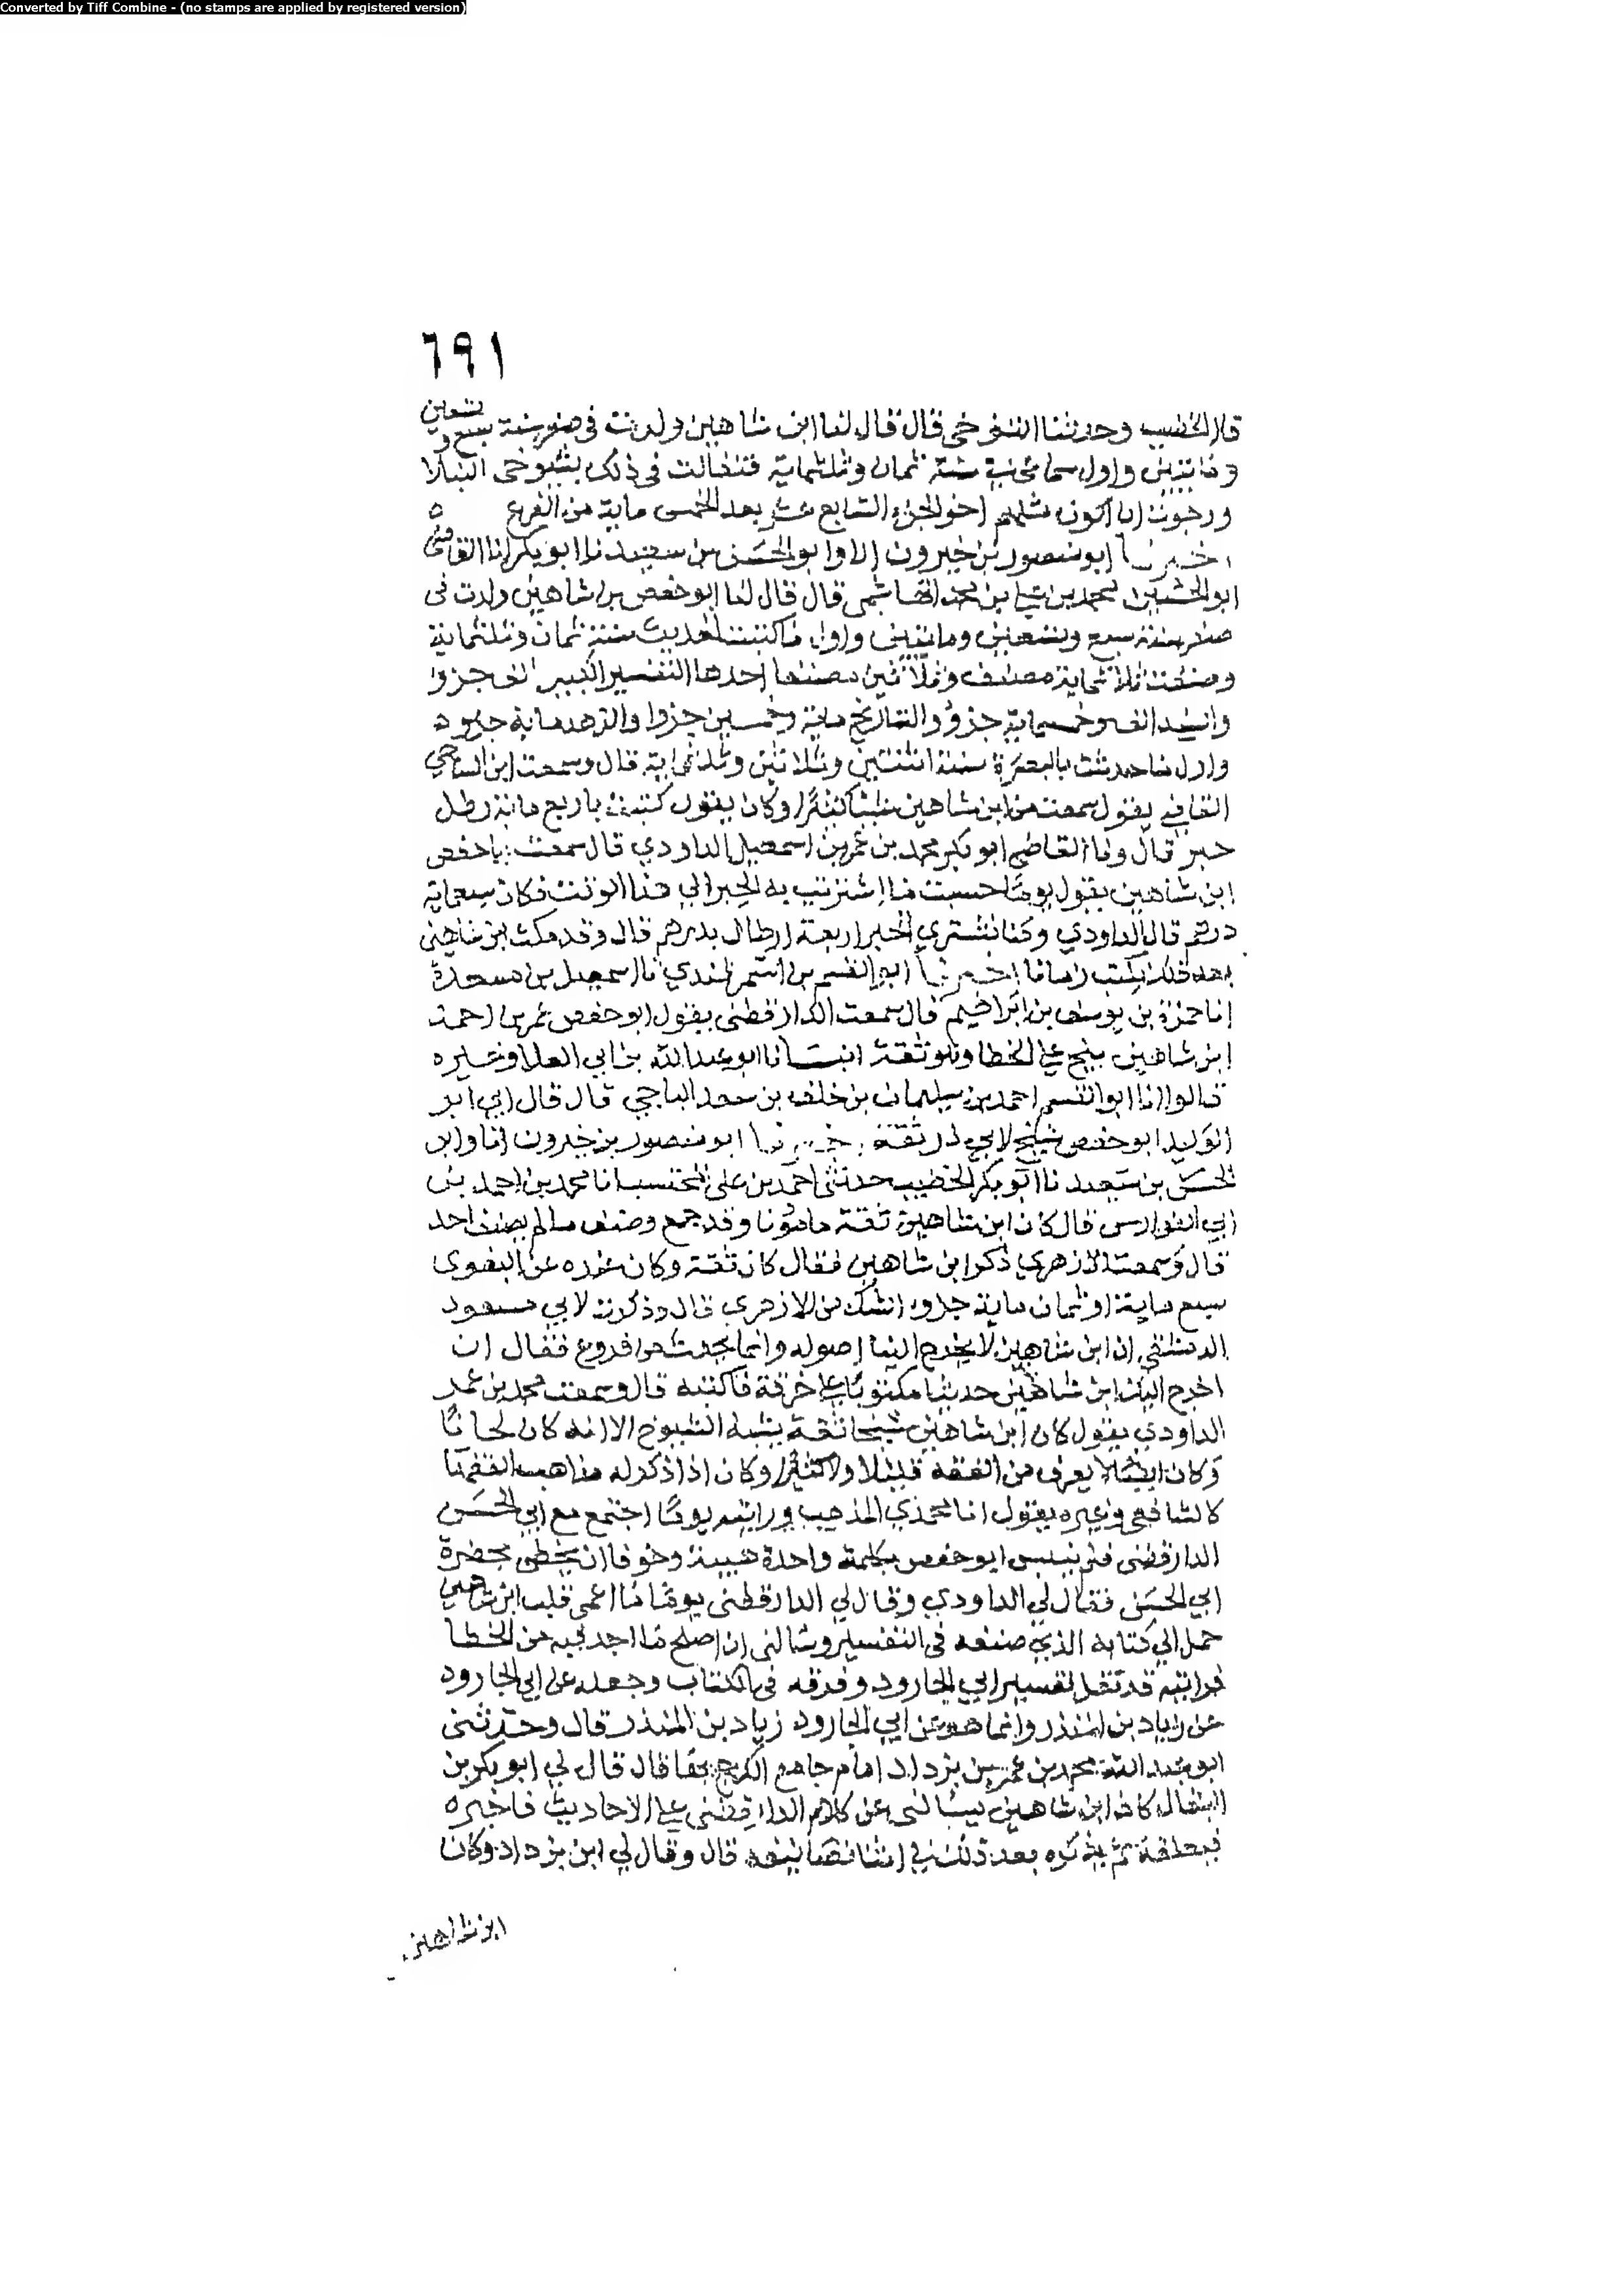 Converted by Tiff Combine - (no stamps are applied by registered version)
٦٩١
قال الخطيب وحدثنا التنوخي قال قال لنا ابن شاهين ولدت في صفر سنة سبع وتسعين
ومايتين واول سماعي سنة ثمان وثلثماية فتفالت في ذلك بشيوخي النبلا
ورجوت ان اكون مثلهم اخر الجزء السابع عشر بعد الخمس ماية من الفرع ه
اخبرنا ابو منصور بن خيرون انا وابو الحسن بن سعيد نا ابو بكر انا القاضي
ابو الحسين محمد بن علي بن محمد الهاشمي قال قال لنا ابو حفص بن شاهين ولدت في
صفر سنة سبع وتسعين ومايتين واول ما كتبت الحديث سنة ثمان وثلثماية
وصنفت ثلاثماية مصنف وثلاثين مصنفا احدها التفسير الكبير الف جزو
والمسند الف وخمسماية جزو والتاريخ ماية وخمسين جزوا والزهد ماية جزو ه
واول ما حدثت بالبصرة سنة اثنتين وثلاثين وثلثماية قال وسمعت ابن الساجي
القاضي يقول سمعت من ابن شاهين شيئا كثيرا وكان يقول كتبت باربع ماية رطل
حبر قال ونا القاضي ابو بكر محمد بن عمر بن اسمعيل الداودي قال سمعت ابا حفص
ابن شاهين يقول يوما حسبت ما اشتريت به الحبر الي هذا الوقت فكان سبعماية
درهم قال الداودي وكنا نشتري الحبر اربعة ارطال بدرهم قال وقد مكث ابن شاهين
بعد ذلك يكتب زمانا اخبرنا ابو القسم بن السمرقندي انا اسمعيل بن مسعدة
انا حمزة بن يوسف بن ابراهيم قال سمعت الدارقطني يقول ابو حفص عمر بن احمد
ابن شاهين يلج علي الخطا وهو ثقة انبانا ابو عبد الله بن ابي العلا وغيره
قالوا انا ابو القسم احمد بن سليمان بن خلف بن سعد الباجي قال قال ابي ابو
الوليد ابو حفص شيخ لابي ذر ثقة اخبرنا ابو منصور بن خيرون انا وابو
الحسن بن سعيد نا ابو بكر الخطيب حدثني احمد بن علي المحتسب انا محمد بن احمد بن
ابي الفوارس قال كان ابن شاهين ثقة مامونا وقد جمع وصنف ما لم يصنف احد
قال وسمعت الازهري ذكر ابن شاهين فقال كان ثقة وكان عنده عن البغوي
سبع ماية او ثمان ماية جزو الشك من الازهري قال وذكرت لابي مسعود
الدمشقي ان ابن شاهين لا يخرج الينا اصوله وانما يحدث من فروع فقال ان
اخرج اليك ابن شاهين حديثا مكتوبا علي خرقة فاكتبه قال وسمعت محمد بن عمر
الداودي يقول كان ابن شاهين شيخا ثقة يشبه الشيوخ الا انه كان لحانا
وكان ايضا لا يعرف من الفقه قليلا ولا كثيرا وكان اذا ذكر له مذاهب الفقها
كالشافعي وغيره يقول انا محمدي المذهب ورايته يوما اجتمع مع ابي الحسن
الدارقطني فلم ينبس ابو حفص بكلمة واحدة هيبة وخوفا ان يخطي بحضرة
ابي الحسن فقال لي الداودي وقال لي الدارقطني يوما ما اعمى قلب ابن شاهين
حمل الي كتابه الذي صنفه في التفسير وسالني ان اصلح ما اجد فيه من الخطا
فرايته قد نقل تفسير ابي الجارود وفرقه في الكتاب وجعله عن ابي الجارود
عن زياد بن المنذر وانما هو عن ابي الجارود زياد بن المنذر قال وحدثني
ابو عبد الله محمد بن عمر بن يزداد امام جامع الكرج بها قال قال لي ابو بكر بن
البقال كان ابن شاهين يسالني عن كلام الدارقطني علي الاحاديث فاخبره
فيعلقه ثم يذكره بعد ذلك في اثنا تصانيفه قال وقال لي ابن يزداد وكان
ابن شاهين